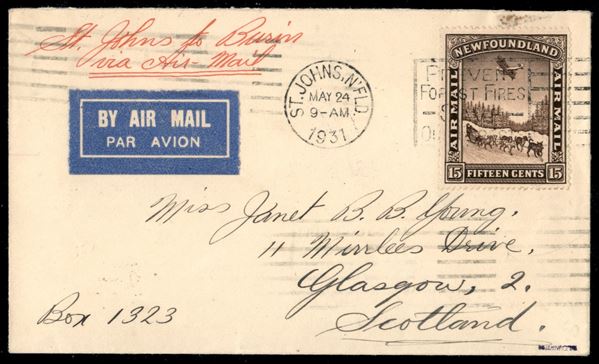 St. Johns to Burin
via Air Mail
BY AIR MAIL
PAR AVION
ST. JOHN'S. N'FLD.
MAY 24
9-AM
1931
PREVENT
FOREST FIRES
NEWFOUNDLAND
AIR MAIL
AIR MAIL
15 FIFTEEN CENTS 15
Miss Janet B. B. Young.
11 Mirrlees Drive,
Glasgow, 2.
Scotland.
Box 1323